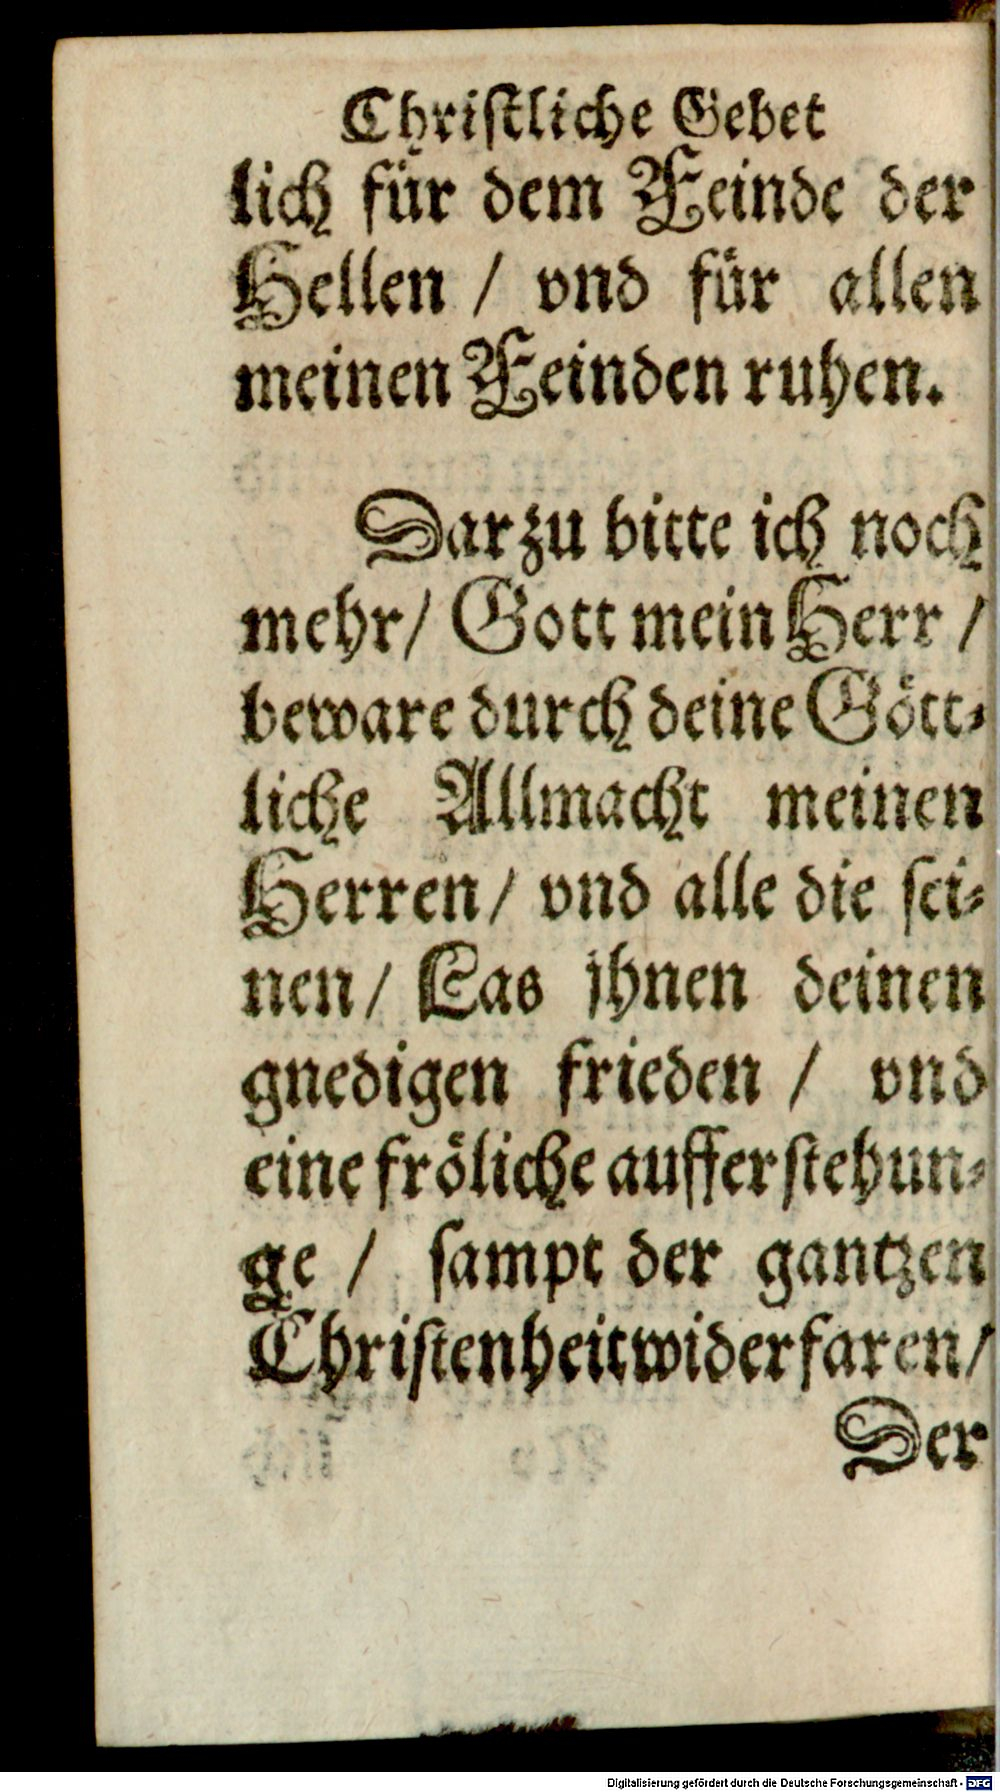 Christliche Gebet
lich für dem Feinde der
Hellen / vnd für allen
meinen Feinden ruhen.
Darzu bitte ich noch
mehr/ Gott mein Herr /
beware durch deine Gött-
liche Allmacht meinen
Herren/ vnd alle die sei-
nen/ Las jhnen deinen
gnedigen frieden / vnd
eine fröliche aufferstehun-
ge / sampt der gantzen
Christenheit widerfaren/
Der
Digitalisierung gefördert durch die Deutsche Forschungsgemeinschaft - DFG